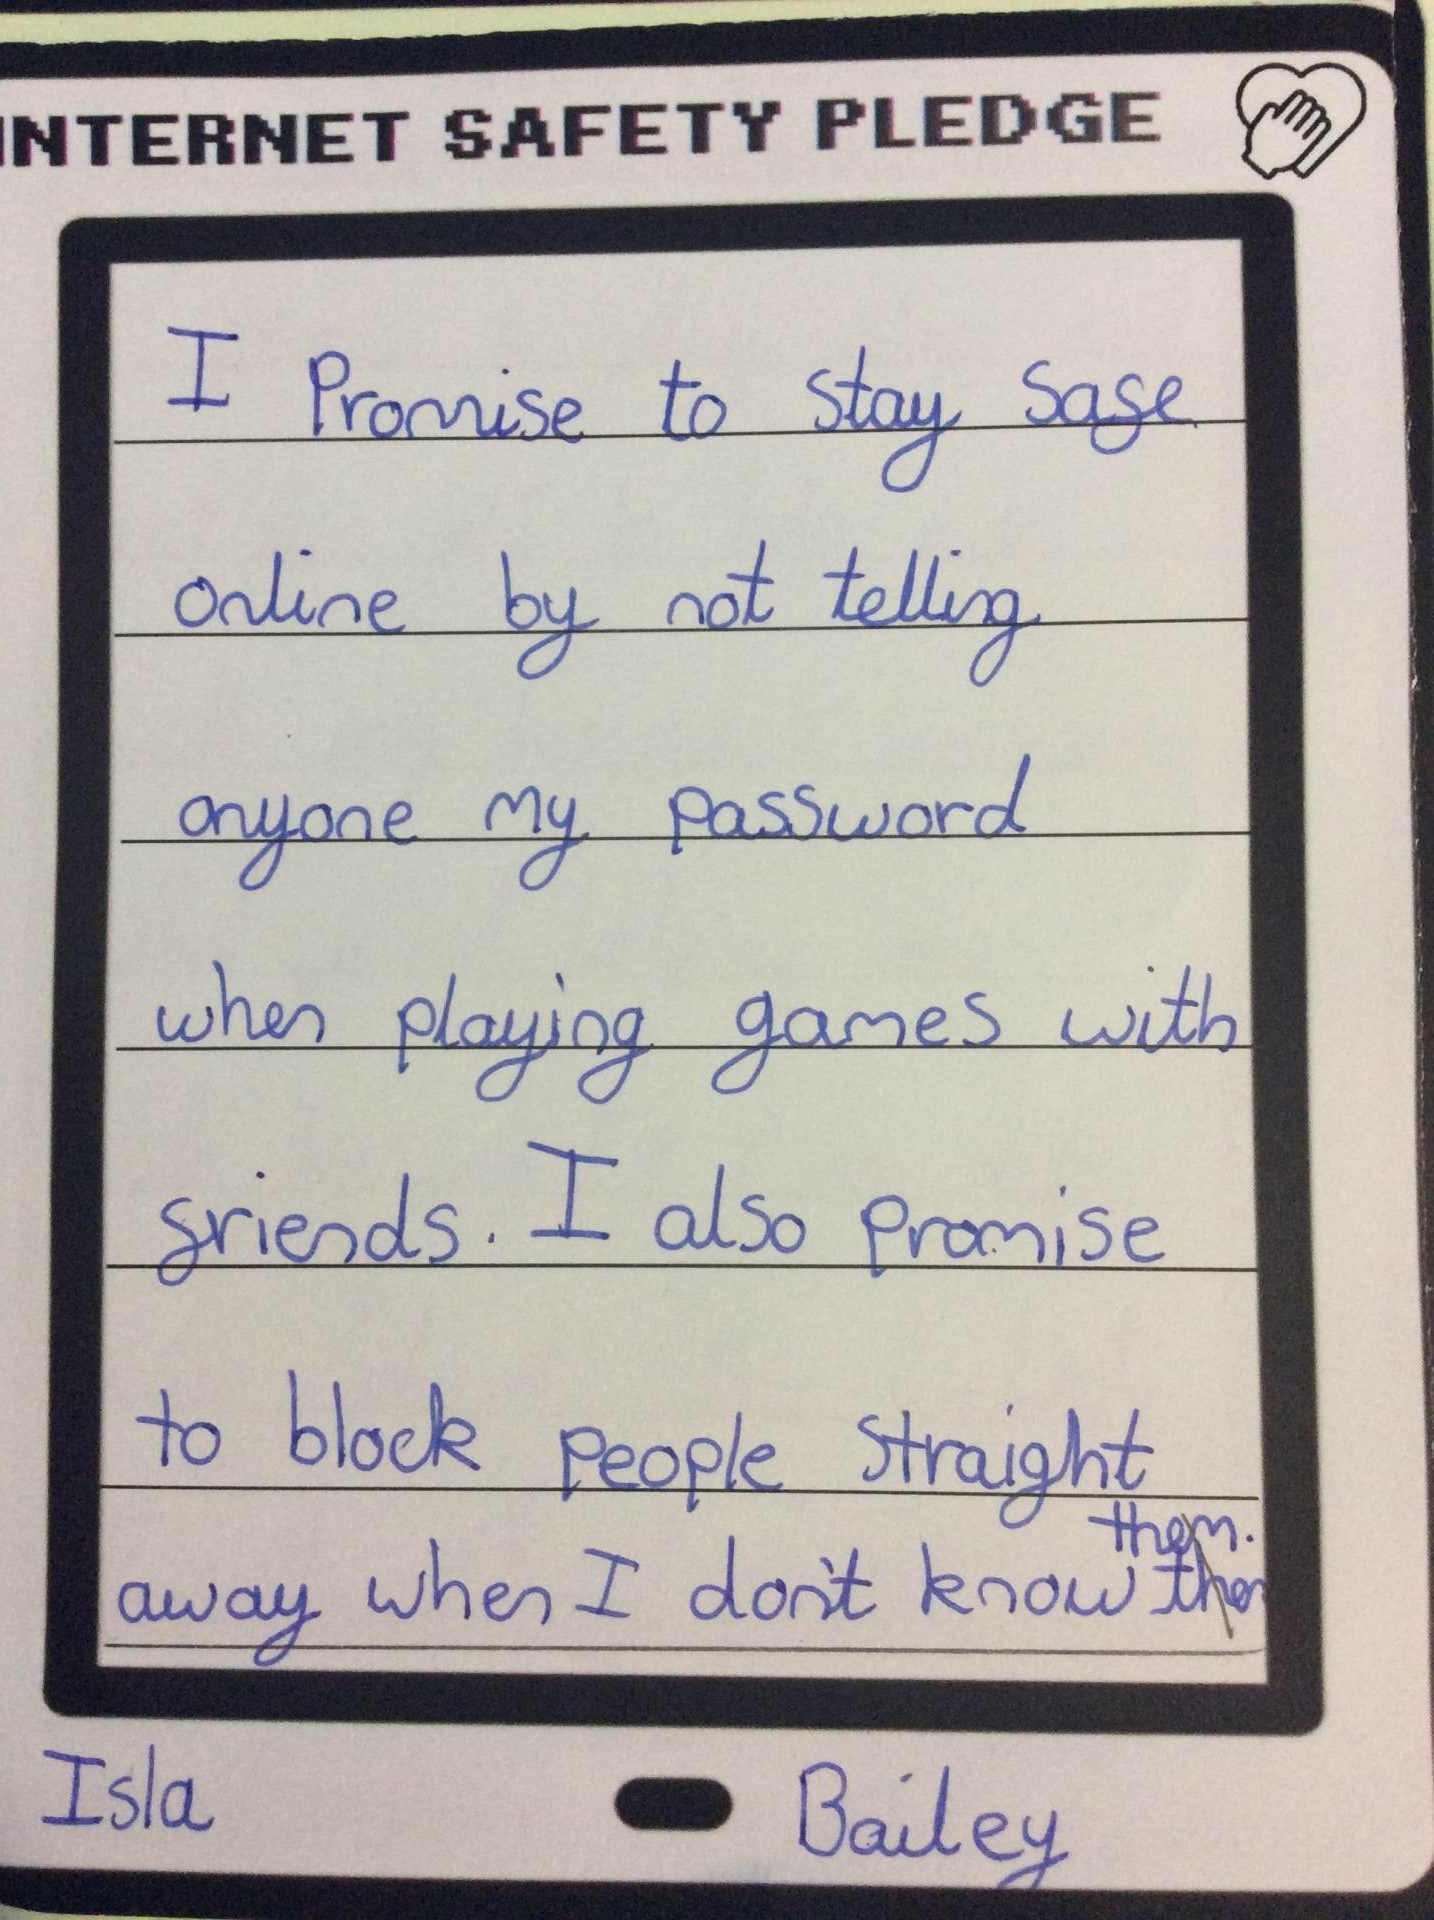 INTERNET SAFETY PLEDGE
I Promise to stay safe
online by not telling
anyone my password
when playing games with
friends. I also promise
to block people straight
them.
away when I don't know them
Isla Bailey